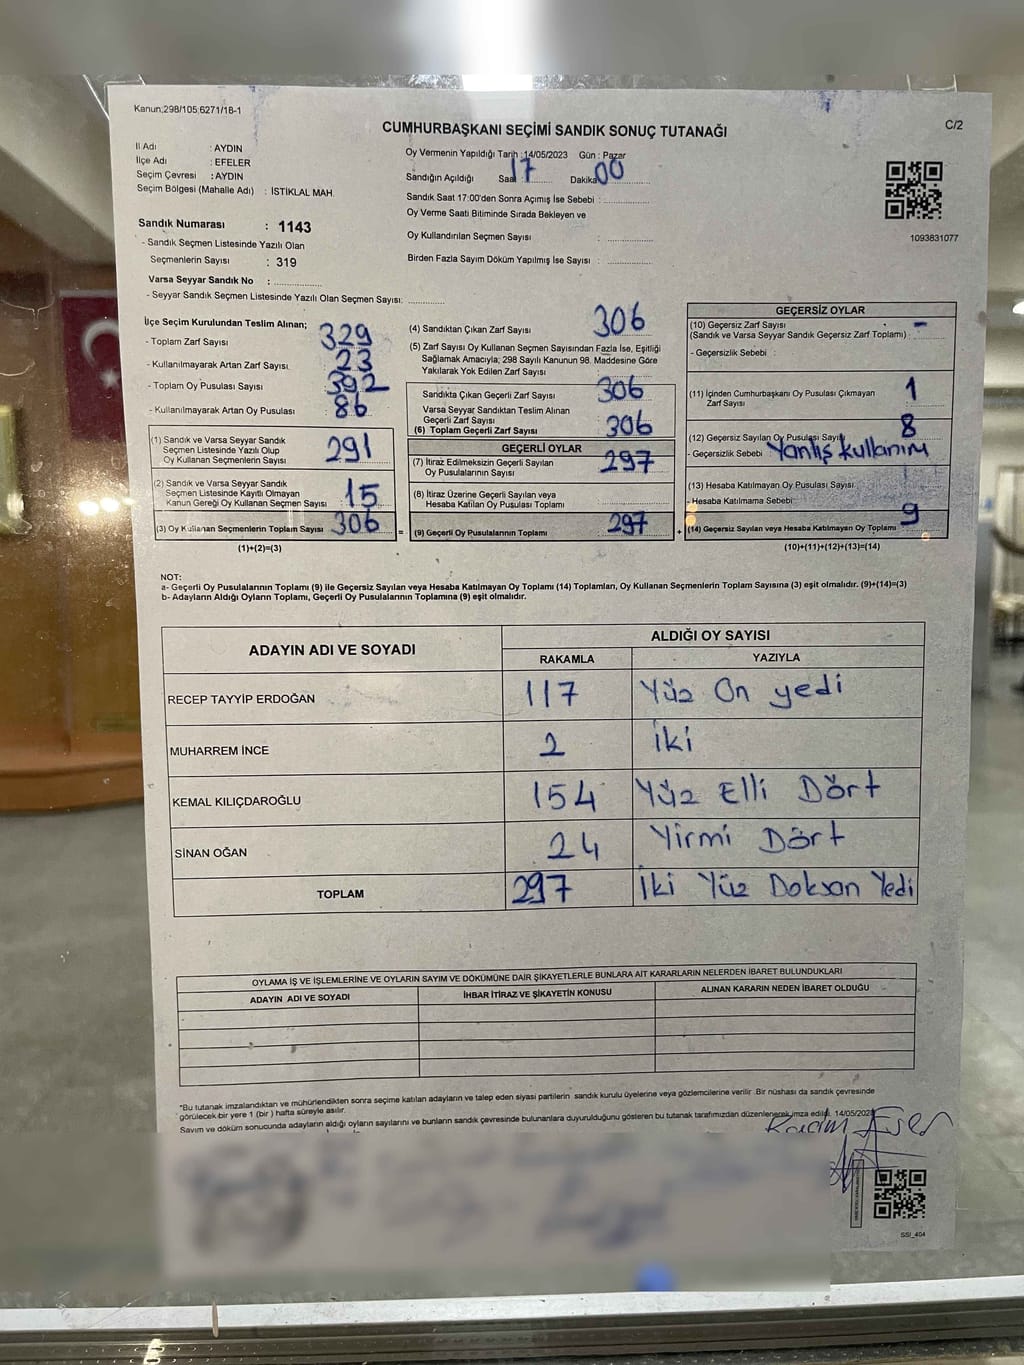 Kanun;298/105;6271/18-1
CUMHURBAŞKANI SEÇİMİ SANDIK SONUÇ TUTANAĞI
C/2
İl Adı : AYDIN
İlçe Adı : EFELER
Seçim Çevresi : AYDIN
Seçim Bölgesi (Mahalle Adı) : İSTİKLAL MAH.
Sandık Numarası : 1143
- Sandık Seçmen Listesinde Yazılı Olan
Seçmenlerin Sayısı : 319
Varsa Seyyar Sandık No :
- Seyyar Sandık Seçmen Listesinde Yazılı Olan Seçmen Sayısı:
Oy Vermenin Yapıldığı Tarih :14/05/2023 Gün : Pazar
Sandığın Açıldığı Saat 17 Dakika 00
Sandık Saat 17:00'den Sonra Açımış İse Sebebi :
Oy Verme Saati Bitiminde Sırada Bekleyen ve
Oy Kullandırılan Seçmen Sayısı :
Birden Fazla Sayım Döküm Yapılmış İse Sayısı :
1093831077
İlçe Seçim Kurulundan Teslim Alınan;
- Toplam Zarf Sayısı 329
- Kullanılmayarak Artan Zarf Sayısı 23
- Toplam Oy Pusulası Sayısı 392
- Kullanılmayarak Artan Oy Pusulası 86
(1) Sandık ve Varsa Seyyar Sandık
Seçmen Listesinde Yazılı Olup
Oy Kullanan Seçmenlerin Sayısı 291
(2) Sandık ve Varsa Seyyar Sandık
Seçmen Listesinde Kayıtlı Olmayan
Kanun Gereği Oy Kullanan Seçmen Sayısı 15
(3) Oy Kullanan Seçmenlerin Toplam Sayısı 306 =
(1)+(2)=(3)
(4) Sandıktan Çıkan Zarf Sayısı 306
(5) Zarf Sayısı Oy Kullanan Seçmen Sayısından Fazla İse, Eşitliği
Sağlamak Amacıyla; 298 Sayılı Kanunun 98. Maddesine Göre
Yakılarak Yok Edilen Zarf Sayısı
Sandıkta Çıkan Geçerli Zarf Sayısı 306
Varsa Seyyar Sandıktan Teslim Alınan
Geçerli Zarf Sayısı
(6) Toplam Geçerli Zarf Sayısı 306
GEÇERLİ OYLAR
(7) İtiraz Edilmeksizin Geçerli Sayılan
Oy Pusulalarının Sayısı 297
(8) İtiraz Üzerine Geçerli Sayılan veya
Hesaba Katılan Oy Pusulası Toplamı
(9) Geçerli Oy Pusulalarının Toplamı 297 +
GEÇERSİZ OYLAR
(10) Geçersiz Zarf Sayısı -
(Sandık ve Varsa Seyyar Sandık Geçersiz Zarf Toplamı)
- Geçersizlik Sebebi :
(11) İçinden Cumhurbaşkanı Oy Pusulası Çıkmayan
Zarf Sayısı 1
(12) Geçersiz Sayılan Oy Pusulası Sayısı 8
- Geçersizlik Sebebi Yanlış Kullanım
(13) Hesaba Katılmayan Oy Pusulası Sayısı
- Hesaba Katılmama Sebebi
(14) Geçersiz Sayılan veya Hesaba Katılmayan Oy Toplamı 9
(10)+(11)+(12)+(13)=(14)
NOT:
a- Geçerli Oy Pusulalarının Toplamı (9) ile Geçersiz Sayılan veya Hesaba Katılmayan Oy Toplamı (14) Toplamları, Oy Kullanan Seçmenlerin Toplam Sayısına (3) eşit olmalıdır. (9)+(14)=(3)
b- Adayların Aldığı Oyların Toplamı, Geçerli Oy Pusulalarının Toplamına (9) eşit olmalıdır.
ADAYIN ADI VE SOYADI
ALDIĞI OY SAYISI
RAKAMLA YAZIYLA
RECEP TAYYİP ERDOĞAN 117 Yüz On yedi
MUHARREM İNCE 2 iki
KEMAL KILIÇDAROĞLU 154 Yüz Elli Dört
SİNAN OĞAN 24 Yirmi Dört
TOPLAM 297 İki Yüz Doksan Yedi
OYLAMA İŞ VE İŞLEMLERİNE VE OYLARIN SAYIM VE DÖKÜMÜNE DAİR ŞİKAYETLERLE BUNLARA AİT KARARLARIN NELERDEN İBARET BULUNDUKLARI
ADAYIN ADI VE SOYADI İHBAR İTİRAZ VE ŞİKAYETİN KONUSU ALINAN KARARIN NEDEN İBARET OLDUĞU
"Bu tutanak imzalandıktan ve mühürlendikten sonra seçime katılan adayların ve talep eden siyasi partilerin sandık kurulu üyelerine veya gözlemcilerine verilir .Bir nüshası da sandık çevresinde
görülecek bir yere 1 (bir ) hafta süreyle asılır.
Sayım ve döküm sonucunda adayların aldığı oyların sayılarını ve bunların sandık çevresinde bulunanlara duyurulduğunu gösteren bu tutanak tarafımızdan düzenlenerek imza edildi. 14/05/2023
SSI_404